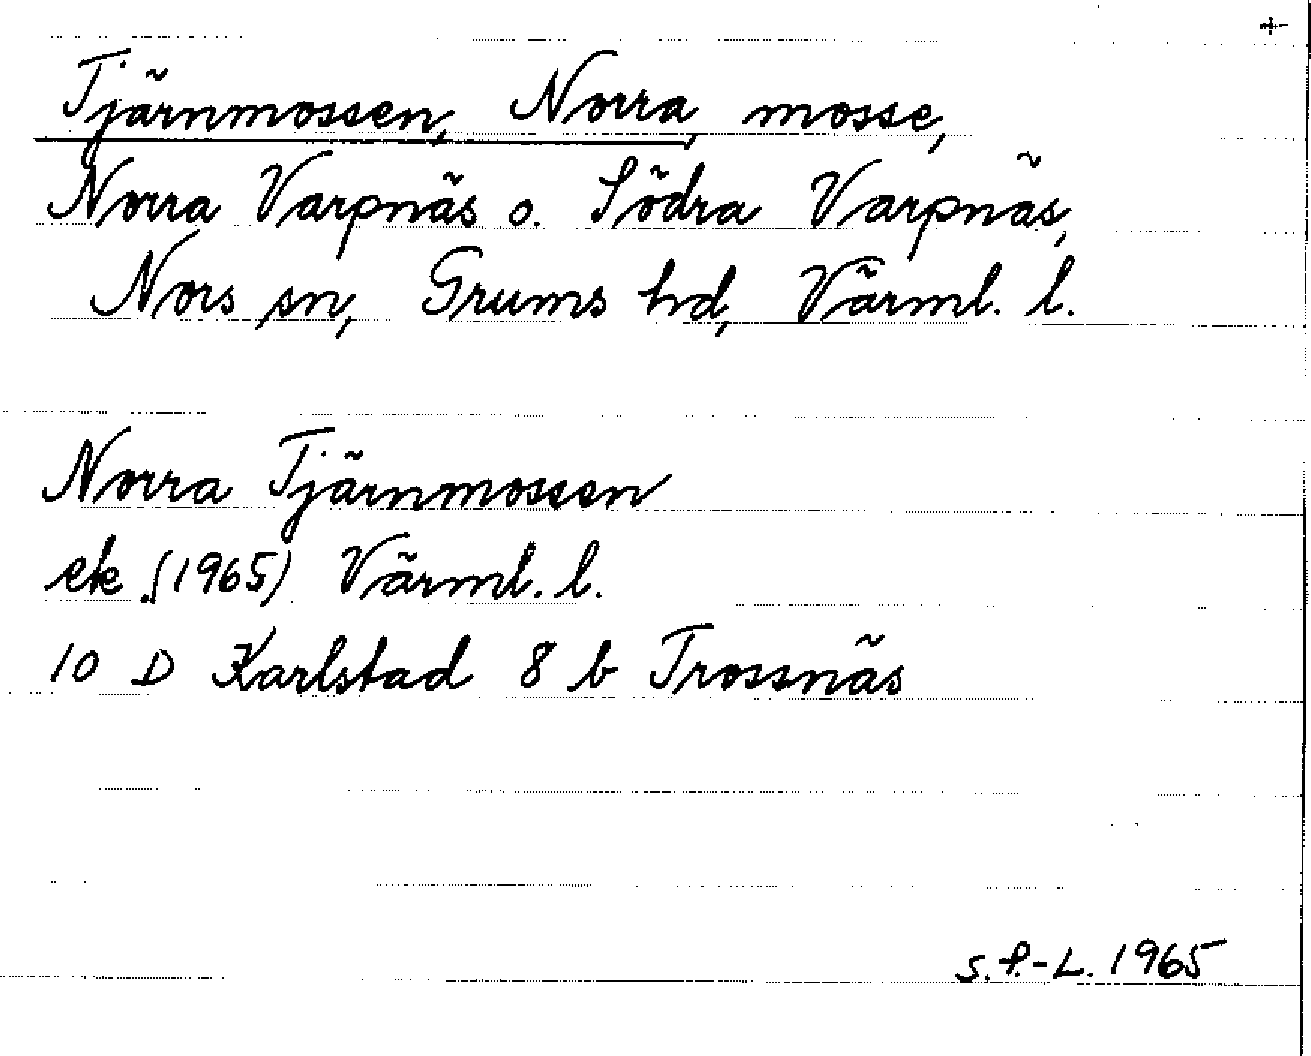 +
Tjärnmossen, Norra, mosse,
Norra Varpnäs o. Södra Varpnäs,
Nors sn, Grums hd, Värml. l.
Norra Tjärnmossen
ek (1965) Värml. l.
10 D Karlstad 8 b Trossnäs
S.P.-L. 1965